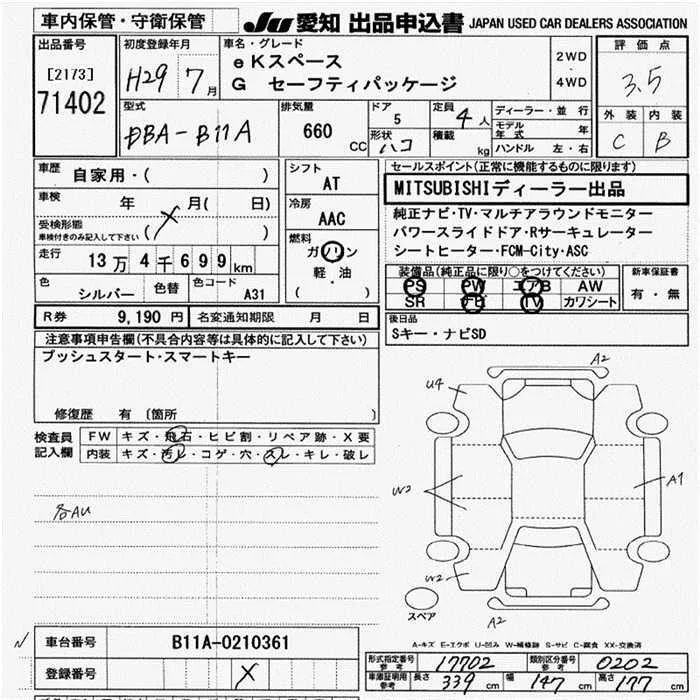 車内保管・守衛保管
JU 愛知 出品申込書 JAPAN USED CAR DEALERS ASSOCIATION
出品番号
[2173]
71402
初度登録年月
H29 7月
車名・グレード
eKスペース
G セーフティパッケージ
2WD
・
4WD
評価点
3.5
外装 内装
C B
型式
DBA-B11A
排気量
660 CC
ドア
5
形状
ハコ
定員
4人
積載
kg
ディーラー・並行
モデル年式 年
ハンドル 左・右
車歴
自家用・( )
車検
年 月( 日)
受検形態
車検付きのみ記入して下さい ( )
走行
13万4千699km
色
シルバー
色替
色コード
A31
シフト
AT
冷房
AAC
燃料
ガソリン
軽・油
( )
セールスポイント(正常に機能するものに限ります)
MITSUBISHIディーラー出品
純正ナビ・TV・マルチアラウンドモニター
パワースライドドア・Rサーキュレーター
シートヒーター・FCM-City・ASC
装備品(純正品に限り○をつけてください)
PS PW エアB AW
SR ナビ TV カワシート
新車保証書
有・無
R券 9,190円 名変通知期限 月 日
後日品
Sキー・ナビSD
注意事項申告欄(不具合内容等は具体的に記入して下さい)
プッシュスタート・スマートキー
修復歴 有 〔箇所 〕
検査員
記入欄
FW キズ・飛石・ヒビ割・リペア跡・X要
内装 キズ・汚レ・コゲ・穴・スレ・キレ・破レ
各AU
A2
U4
W2
A1
W2
A2
スペア
A-キズ E-エクボ U-凹み W-補修跡 S-サビ C-腐食 XX-交換済
車台番号 B11A-0210361
登録番号
形式指定番号
参考
17702
類別区分番号
参考
0202
車庫証明用
参考
長さ 339cm 幅 147cm 高さ 177cm